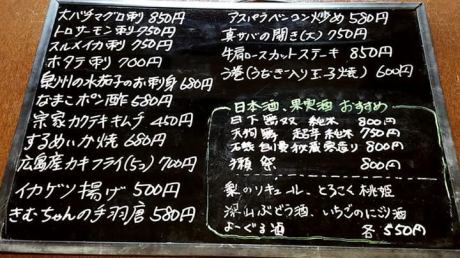 大バチマグロ刺 850円
トロサーモン刺 750円
スルメイカ刺 750円
ホタテ刺 700円
泉州の水茄子のお刺身 680円
なまこポン酢 580円
宗家カクテキキムチ 450円
するめいか焼 680円
広島産カキフライ(5コ) 700円
イカゲソ揚げ 500円
きむちゃんの手羽唐 580円
アスパラベーコン炒め 580円
真サバの開き(大) 750円
牛肩ロースカットステーキ 850円
う巻(うなぎ入り玉子焼) 600円
日本酒、果実酒 おすすめ
純米 800円
天狗舞 超辛純米 750円
800円
獺祭 800円
梨のリキュール、とろこく桃姫
深山ぶどう酒、いちごのにごり酒
よーぐる酒 各550円